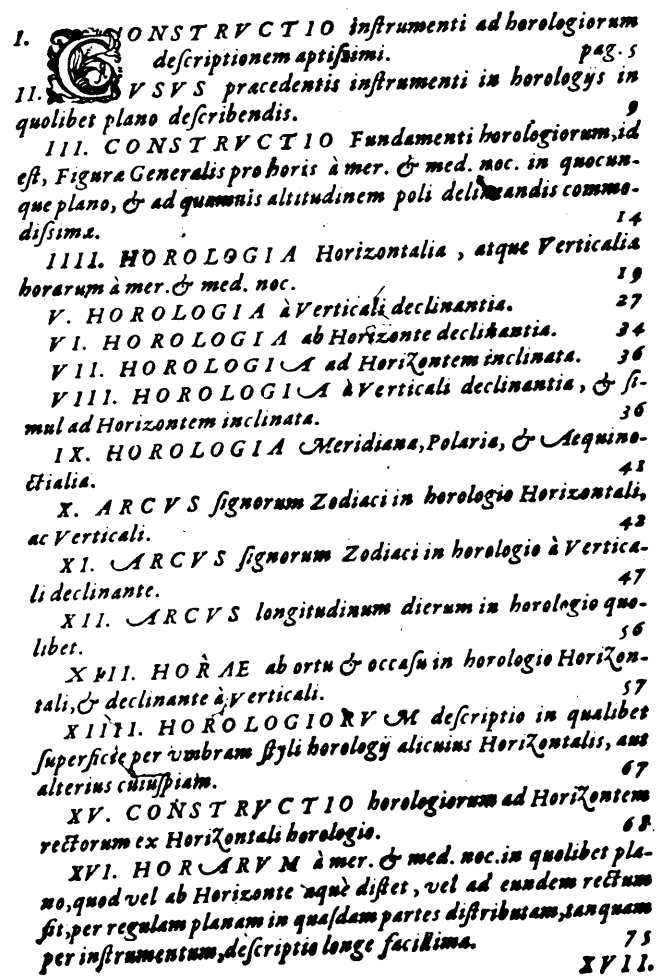 I. CONSTRVCTIO inſtrumenti ad horologiorum
deſcriptionem aptiſsimi. pag. 5
II. VSVS præcedentis inſtrumenti in horologijs in
quolibet plano deſcribendis. 9
III. CONSTRVCTIO Fundamenti horologiorum, id
eſt, Figuræ Generalis pro horis à mer. & med. noc. in quocun-
que plano, & ad quamuis altitudinem poli delineandis commo-
diſsimæ. 14
IIII. HOROLOGIA Horizontalia, atque Verticalia
horarum à mer. & med. noc. 19
V. HOROLOGIA à Verticali declinantia. 27
VI. HOROLOGIA ab Horizonte declinantia. 34
VII. HOROLOGIA ad Horizontem inclinata. 36
VIII. HOROLOGIA à Verticali declinantia, & ſi-
mul ad Horizontem inclinata. 36
IX. HOROLOGIA Meridiana, Polaria, & Aequino-
ctialia. 41
X. ARCVS ſignorum Zodiaci in horologio Horizontali,
ac Verticali. 42
XI. ARCVS ſignorum Zodiaci in horologio à Vertica-
li declinante. 47
XII. ARCVS longitudinum dierum in horologio quo-
libet. 56
XIII. HORAE ab ortu & occaſu in horologio Horizon-
tali, & declinante à Verticali. 57
XIIII. HOROLOGIORVM deſcriptio in qualibet
ſuperficie per vmbram ſtyli horologij alicuius Horizontalis, aut
alterius cuiuſpiam. 67
XV. CONSTRVCTIO horologiorum ad Horizontem
rectorum ex Horizontali horologio. 68
XVI. HORARVM à mer. & med. noc. in quolibet pla-
no, quod vel ab Horizonte æquè diſtet, vel ad eundem rectum
ſit, per regulam planam in quaſdam partes diſtributam, tanquam
per inſtrumentum, deſcriptio longe facillima. 75
XVII.